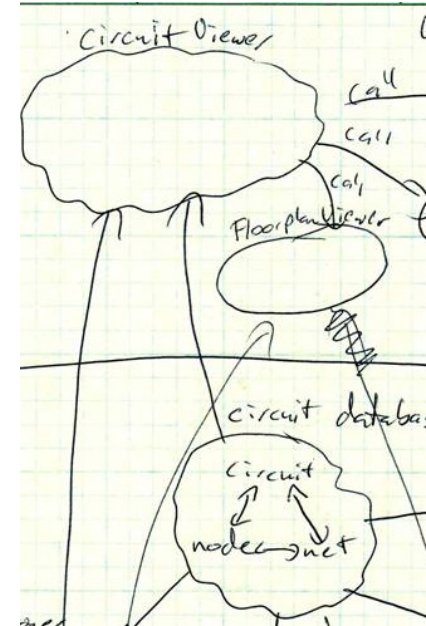 Circuit Viewer
call
call
call
Floorplan Viewer
circuit databas
circuit
node net